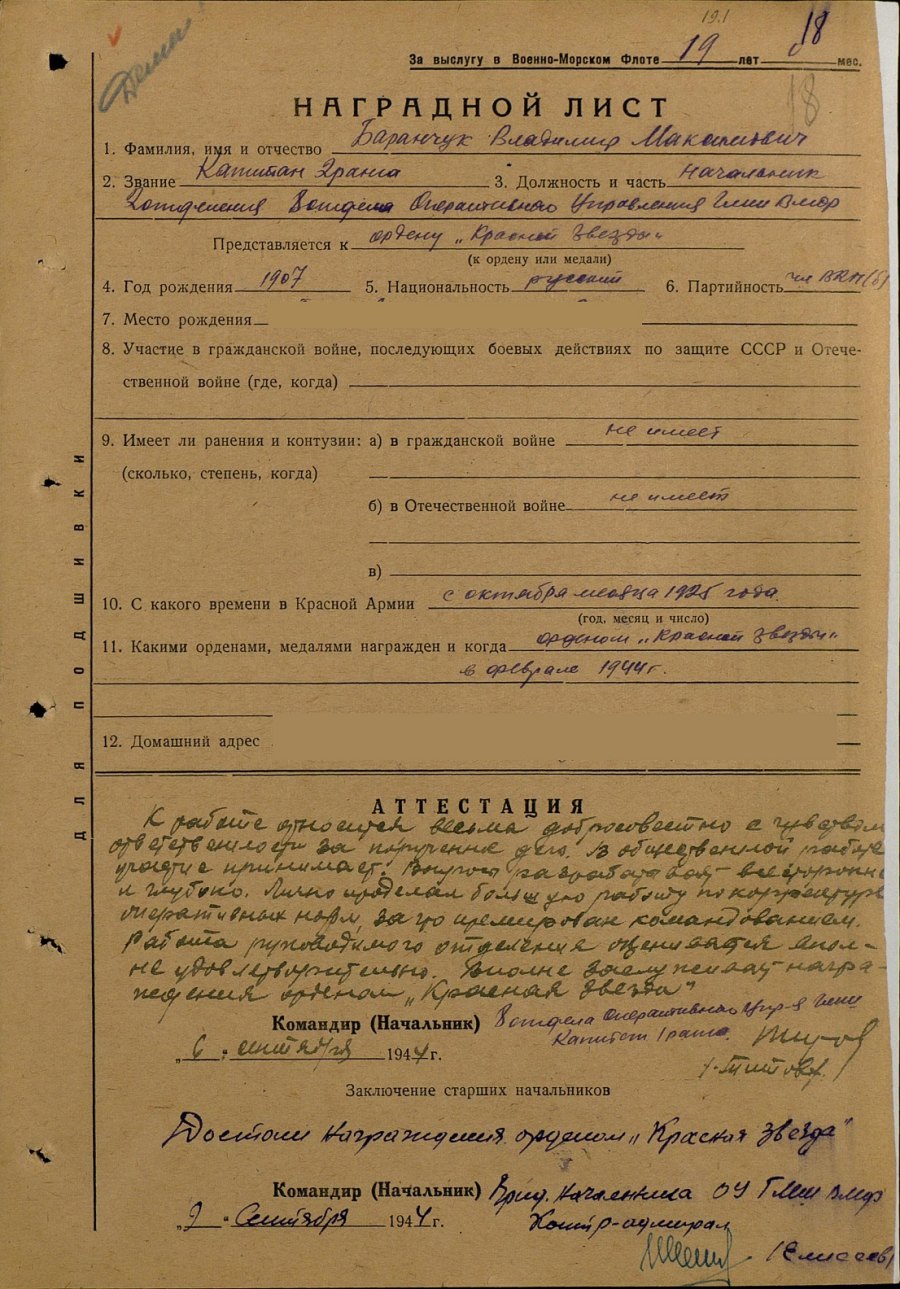 19.1
18
За выслугу в Военно-Морском Флоте 19 лет мес.
18
НАГРАДНОЙ ЛИСТ
1. Фамилия, имя и отчество Баранчук Владимир Максимович
2. Звание Капитан 2 ранга 3. Должность и часть Начальник
2 отделения 8 отдела Оперативного Управления ГМШ ВМФ
Представляется к ордену „Красной Звезды"
(к ордену или медали)
4. Год рождения 1907 5. Национальность русский 6. Партийность чл ВКП(б)
7. Место рождения
8. Участие в гражданской войне, последующих боевых действиях по защите СССР и Отече-
ственной войне (где, когда)
9. Имеет ли ранения и контузии: а) в гражданской войне не имеет
(сколько, степень, когда)
б) в Отечественной войне не имеет
в)
10. С какого времени в Красной Армии с октября месяца 1925 года.
(год, месяц и число)
11. Какими орденами, медалями награжден и когда орденом „Красной Звезды"
в феврале 1944 г.
12. Домашний адрес
ДЛЯ ПОДШИВКИ
АТТЕСТАЦИЯ
К работе относится весьма добросовестно с чувством
ответственности за порученное дело. В общественной работе
участие принимает. Вопросы разрабатывает всесторонне
и глубоко. Лично проделал большую работу по корректуре
оперативных норм, за что премирован командованием.
Работа руководимого отделения оценивается впол-
не удовлетворительно. Вполне заслуживает награ-
ждения орденом „Красная Звезда"
Командир (Начальник) 8 отдела Оперативного Упр-я ГМШ
Капитан 1 ранга
„6" сентября 1944 г.
/-Титов/
Заключение старших начальников
Достоин награждения орденом „Красная Звезда"
Командир (Начальник) Врид. Начальника ОУ ГМШ ВМФ
„9" Сентября 1944 г. Контр-адмирал
(Елисеев)